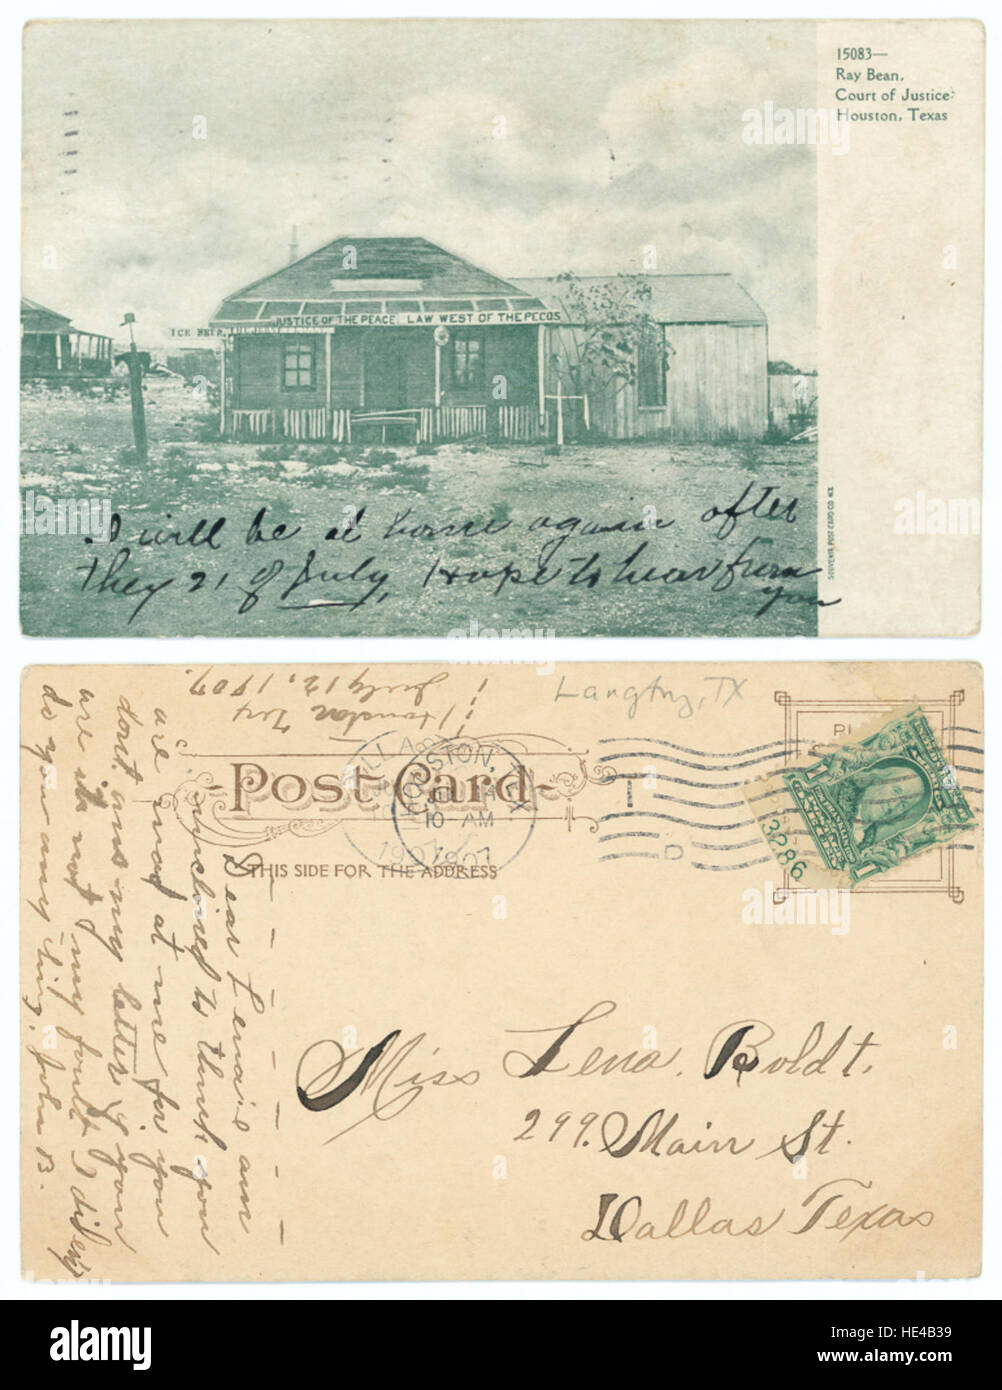 15083—
Ray Bean,
Court of Justice,
Houston, Texas
JUSTICE OF THE PEACE LAW WEST OF THE PECOS
ICE BEER
SOUVENIR POST CARD CO. N.Y.
I will be at home again after
they 21 of July, Hope to hear from
you
Langtry, TX
Houston Tex
July 12, 1907.
Post Card
THIS SIDE FOR THE ADDRESS
HOUSTON, TEX
10-AM
1907
1907
1
1
3286
Dear Lena i am
surprised to think you
are mad at me for you
dont ans my letter if you
are its not my fault I did
do you any thing. John B.
Miss Lena Boldt.
299. Main St.
Dallas Texas
alamy
alamy
Image ID: HE4B39
www.alamy.com